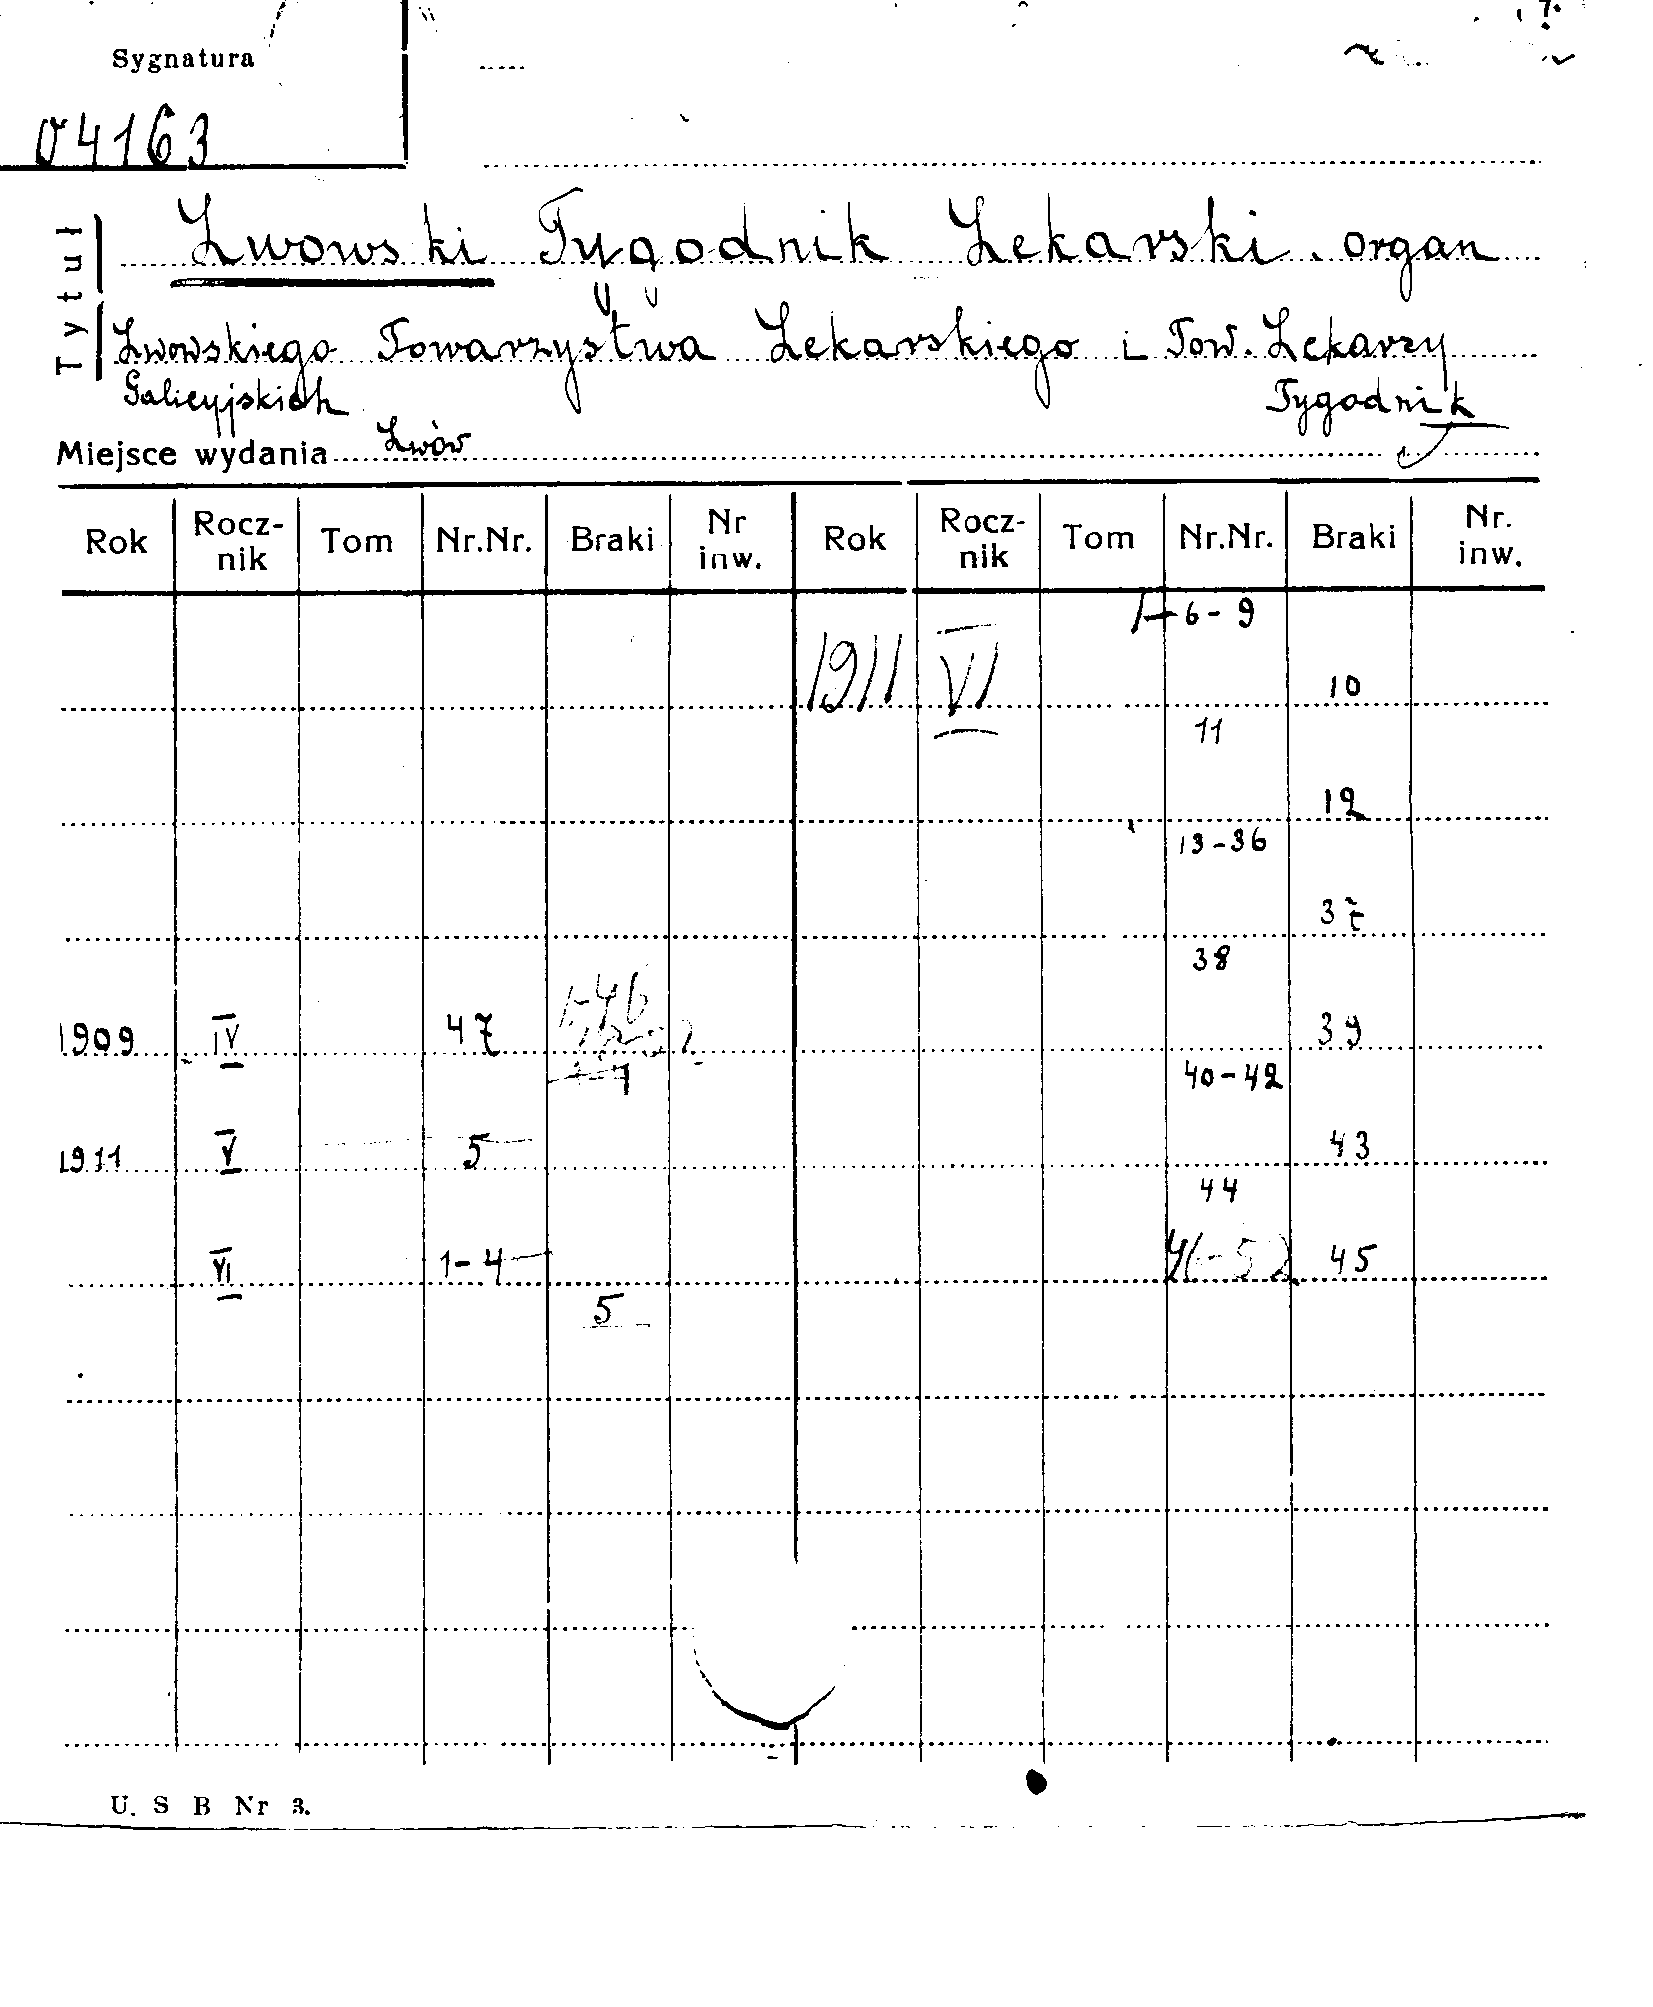 Sygnatura
04163
Tytuł
Lwowski Tygodnik Lekarski. organ
Lwowskiego Towarzystwa Lekarskiego i Tow. Lekarzy
Galicyjskich
Tygodnik
Miejsce wydania Lwów
Rok Rocz-nik Tom Nr.Nr. Braki Nr inw. Rok Rocz-nik Tom Nr.Nr. Braki Nr. inw.
6-9
1911 VI 10
11
12
13-36
37
38
1-46
1909 IV 47 39
40-42
1911 V 5 43
44
VI 1-4 46-52 45
5
U. S B Nr 3.